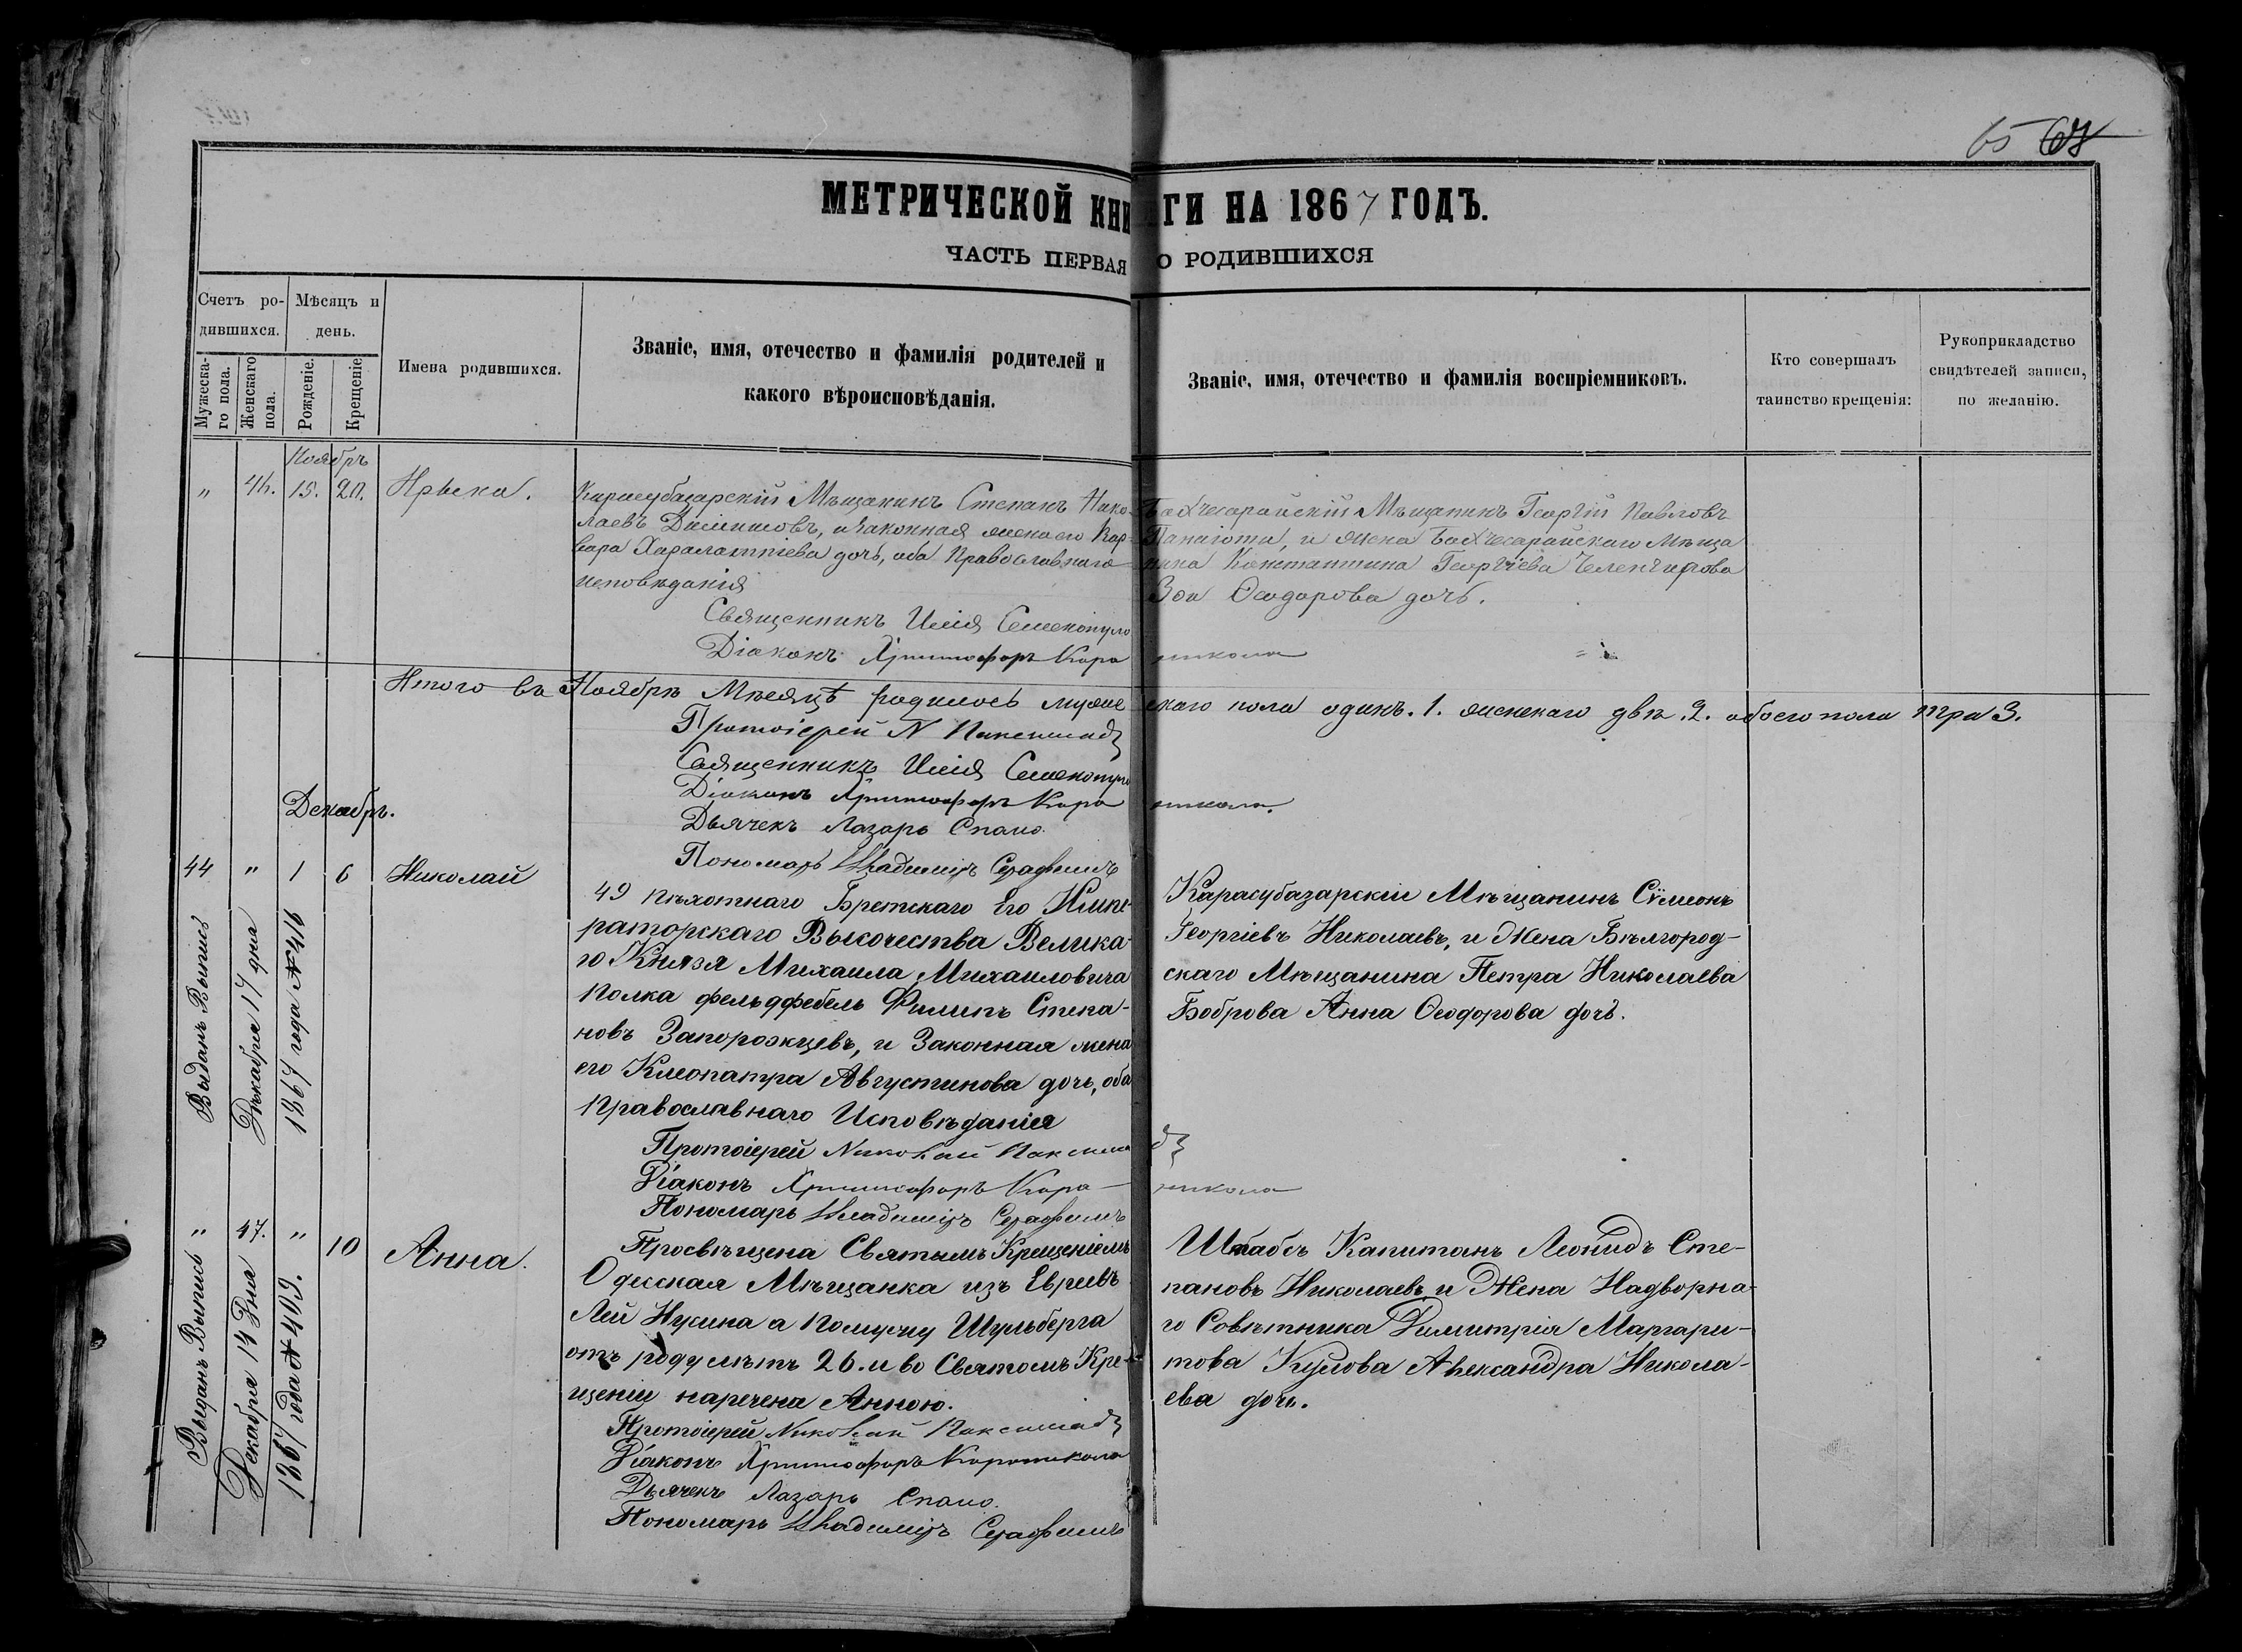 65 67
МЕТРИЧЕСКОЙ КНИГИ НА 1867 ГОДЪ.
ЧАСТЬ ПЕРВАЯ О РОДИВШИХСЯ
Счетъ ро-
дившихся.
Мужеска-
го пола.
Женскаго
пола.
Мѣсяцъ и
день.
Рожденіе.
Крещеніе
Имена родившихся.
Званіе, имя, отечество и фамилія родителей и
какого вѣроисповѣданія.
Званіе, имя, отечество и фамилія воспріемниковъ.
Кто совершалъ
таинство крещенія:
Рукоприкладство
свидѣтелей записи,
по желанію.
Ноябрь
" 46. 15. 20.
Карасубазарскій Мѣщанинъ Степанъ Нико-
лаевъ, и законная жена его Вар-
вара Харалампіева дочь, оба Православнаго
исповѣданія
Священникъ Илія
Діаконъ Христофоръ Кара
никола
Бахчесарайскій Мѣщанинъ Георгій Павловъ
Панаіоти, и жена Бахчесарайскаго Мѣща
нина Константина Георгіева
Зоя Ѳеодорова дочь.
Итого въ Ноябрѣ Мѣсяцѣ родилось муже
скаго пола одинъ. 1. женскаго двѣ. 2. обоего пола три 3.
Протоіерей N
Священникъ Илія
Діаконъ Христофоръ Кара
никола.
Дьячекъ Лазарь Спано.
Пономарь Владиміръ Серафимъ
Декабрь.
44 " 1 6 Николай
49 пѣхотнаго Бретскаго Его Импе-
раторскаго Высочества Велика-
го Князя Михаила Михаиловича
полка фельдфебель Филипъ Степа-
новъ Запорожцевъ, и Законная жена
его Клеопатра Августинова дочь, оба
Православнаго Исповѣданія
Протоіерей Николай
Діаконъ Христофоръ Кара-
никола
Пономарь Владиміръ Серафимъ
Карасубазарскій Мѣщанинъ Сѵмеонъ
Георгіевъ Николаевъ, и Жена Бѣлгород-
скаго Мѣщанина Петра Николаева
Боброва Анна Ѳеодорова дочь.
Выданъ Выпись
Декабря 17 дня
1867 года № 416
" 47. " 10 Анна.
Просвѣщена Святымъ Крещеніемъ
Одесская Мѣщанка изъ Евреевъ
Лея Нусина а по мужу Шульберга
отъ роду лѣтъ 26. и во Святомъ Кре-
щеніи наречена Анною.
Протоіерей Николай
Діаконъ Христофоръ Караникола
Дьячекъ Лазарь Спано.
Пономарь Владиміръ Серафимъ
Штабсъ Капитанъ Леонидъ Сте-
пановъ Николаевъ и Жена Надворна-
го Совѣтника Димитрія Маргари-
това Александра Никола-
ева дочь.
Выданъ Выпись
Декабря 14 Дня
1867 года № 409.